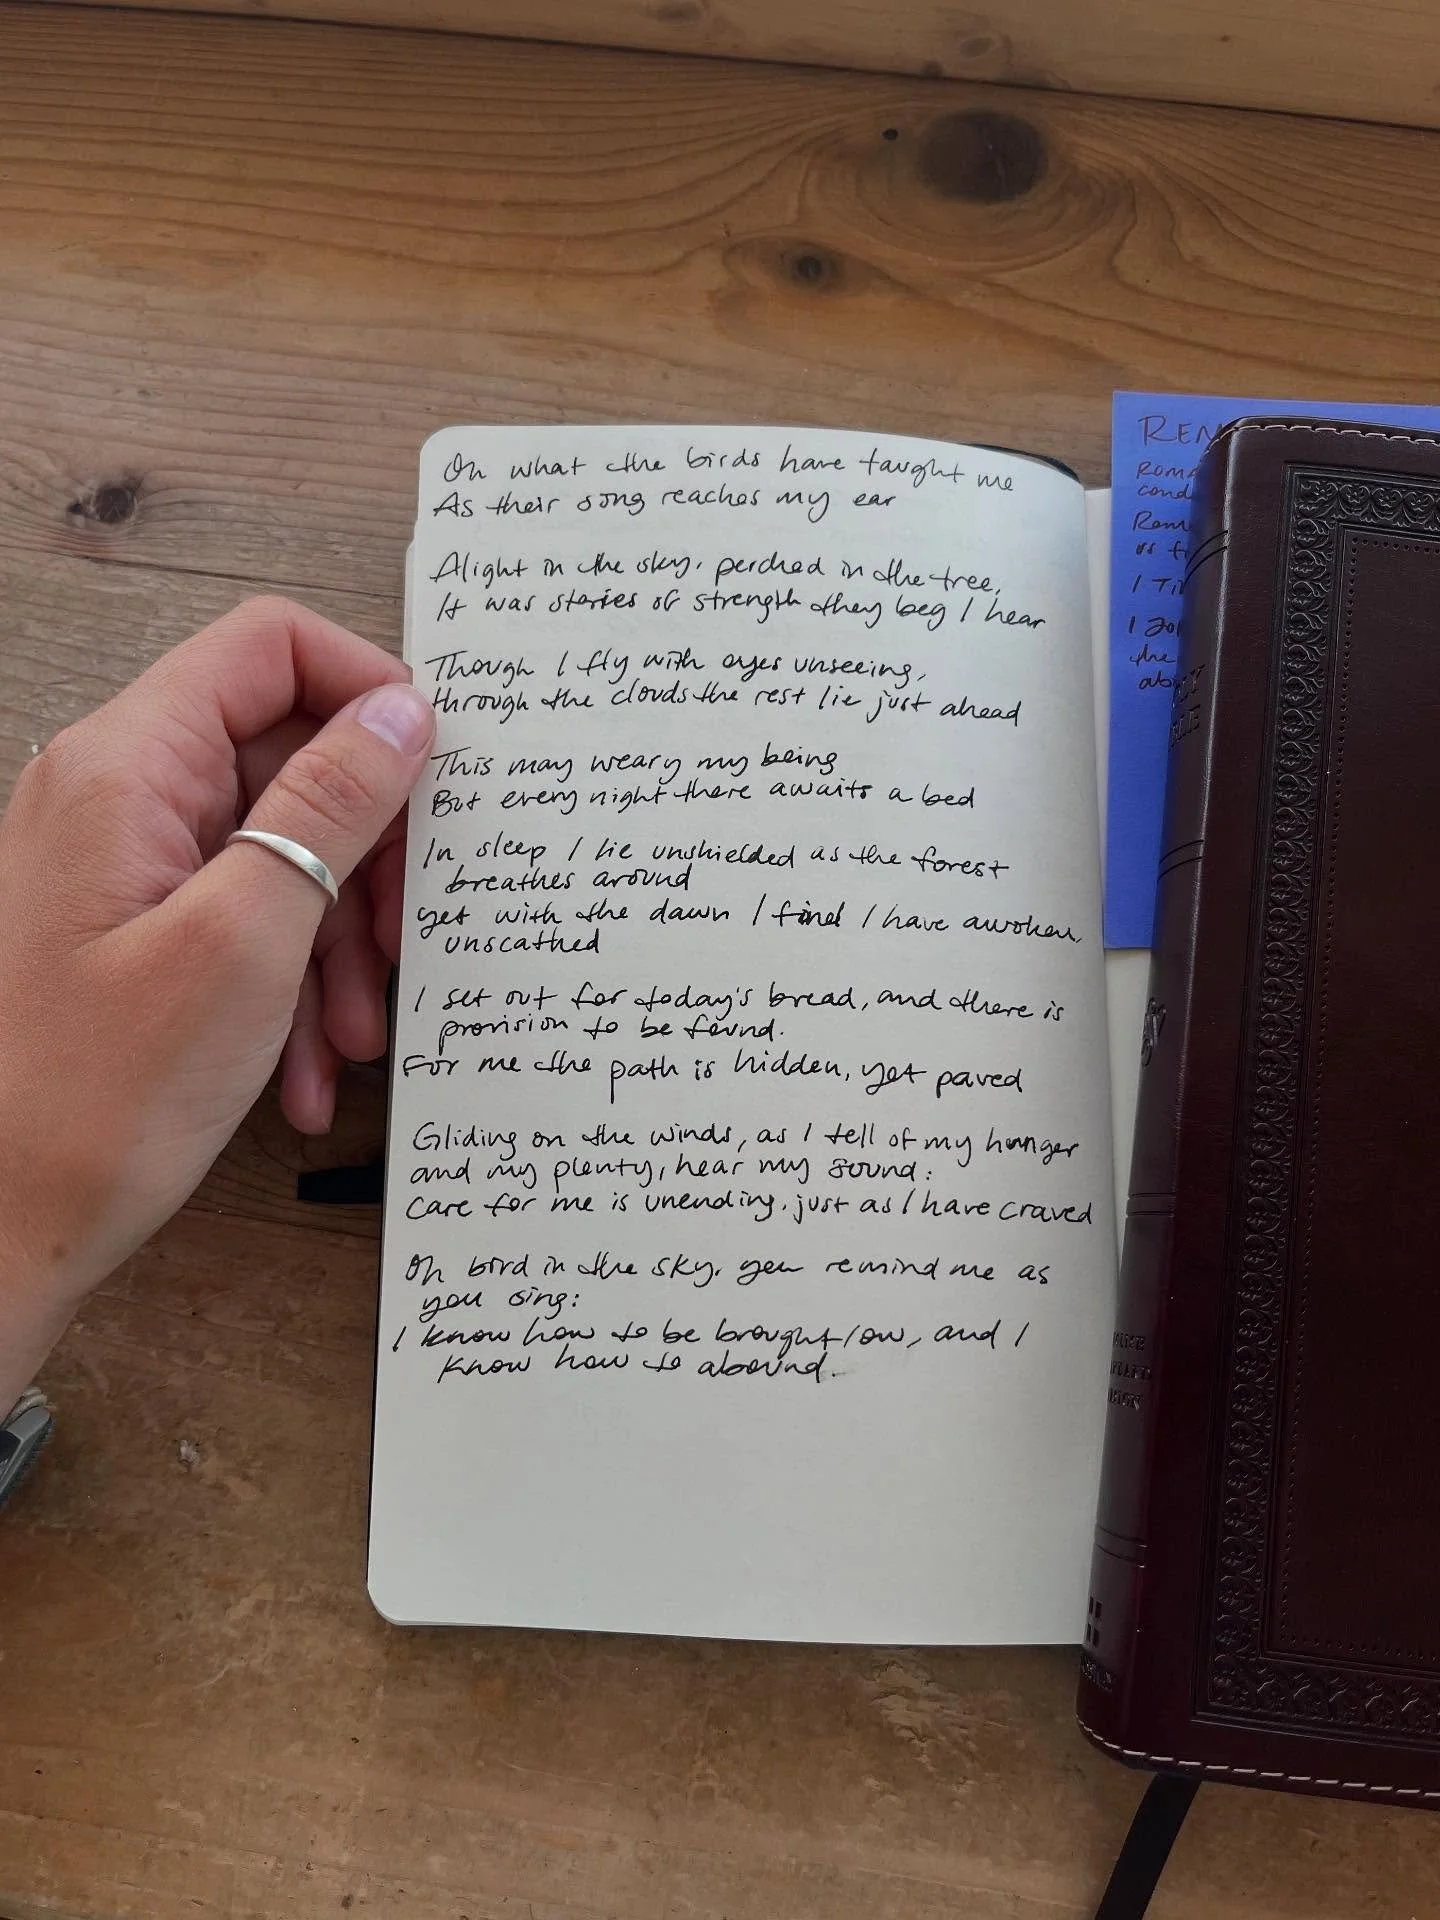 Oh what the birds have taught me
As their song reaches my ear
Alight in the sky, perched in the tree,
It was stories of strength they beg I hear
Though I fly with eyes unseeing,
through the clouds the rest lie just ahead
This may weary my being
But every night there awaits a bed
In sleep I lie unshielded as the forest
breathes around
yet with the dawn I find I have awoken,
unscathed
I set out for today's bread, and there is
provision to be found.
For me the path is hidden, yet paved
Gliding on the winds, as I tell of my hunger
and my plenty, hear my sound:
Care for me is unending, just as I have craved
Oh bird in the sky, you remind me as
you sing:
I know how to be brought low, and I
know how to abound.
REM
ROMA
cond
Rem
us f
1 Ti
1 Jo
the
ab